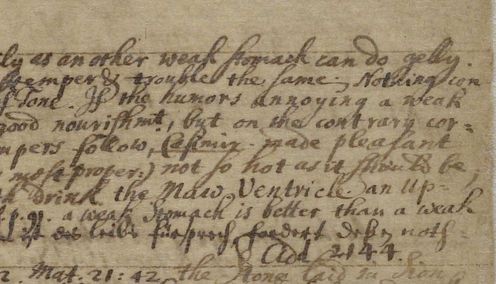 as another weak stomack can do gelly.
temper & trouble the same; Nothing con
Tone. If the humors annoying a weak
good nourishmt, but on the contrary cor=
mpers follow, made pleasant
most proper.) not so hot as it should be,
drink the Maw, Ventricle, an Up-
p. 91. a weak stomack is better than a weak
des leibs noth
2144.
2. Mat. 21: 42. the Stone laid in Sion